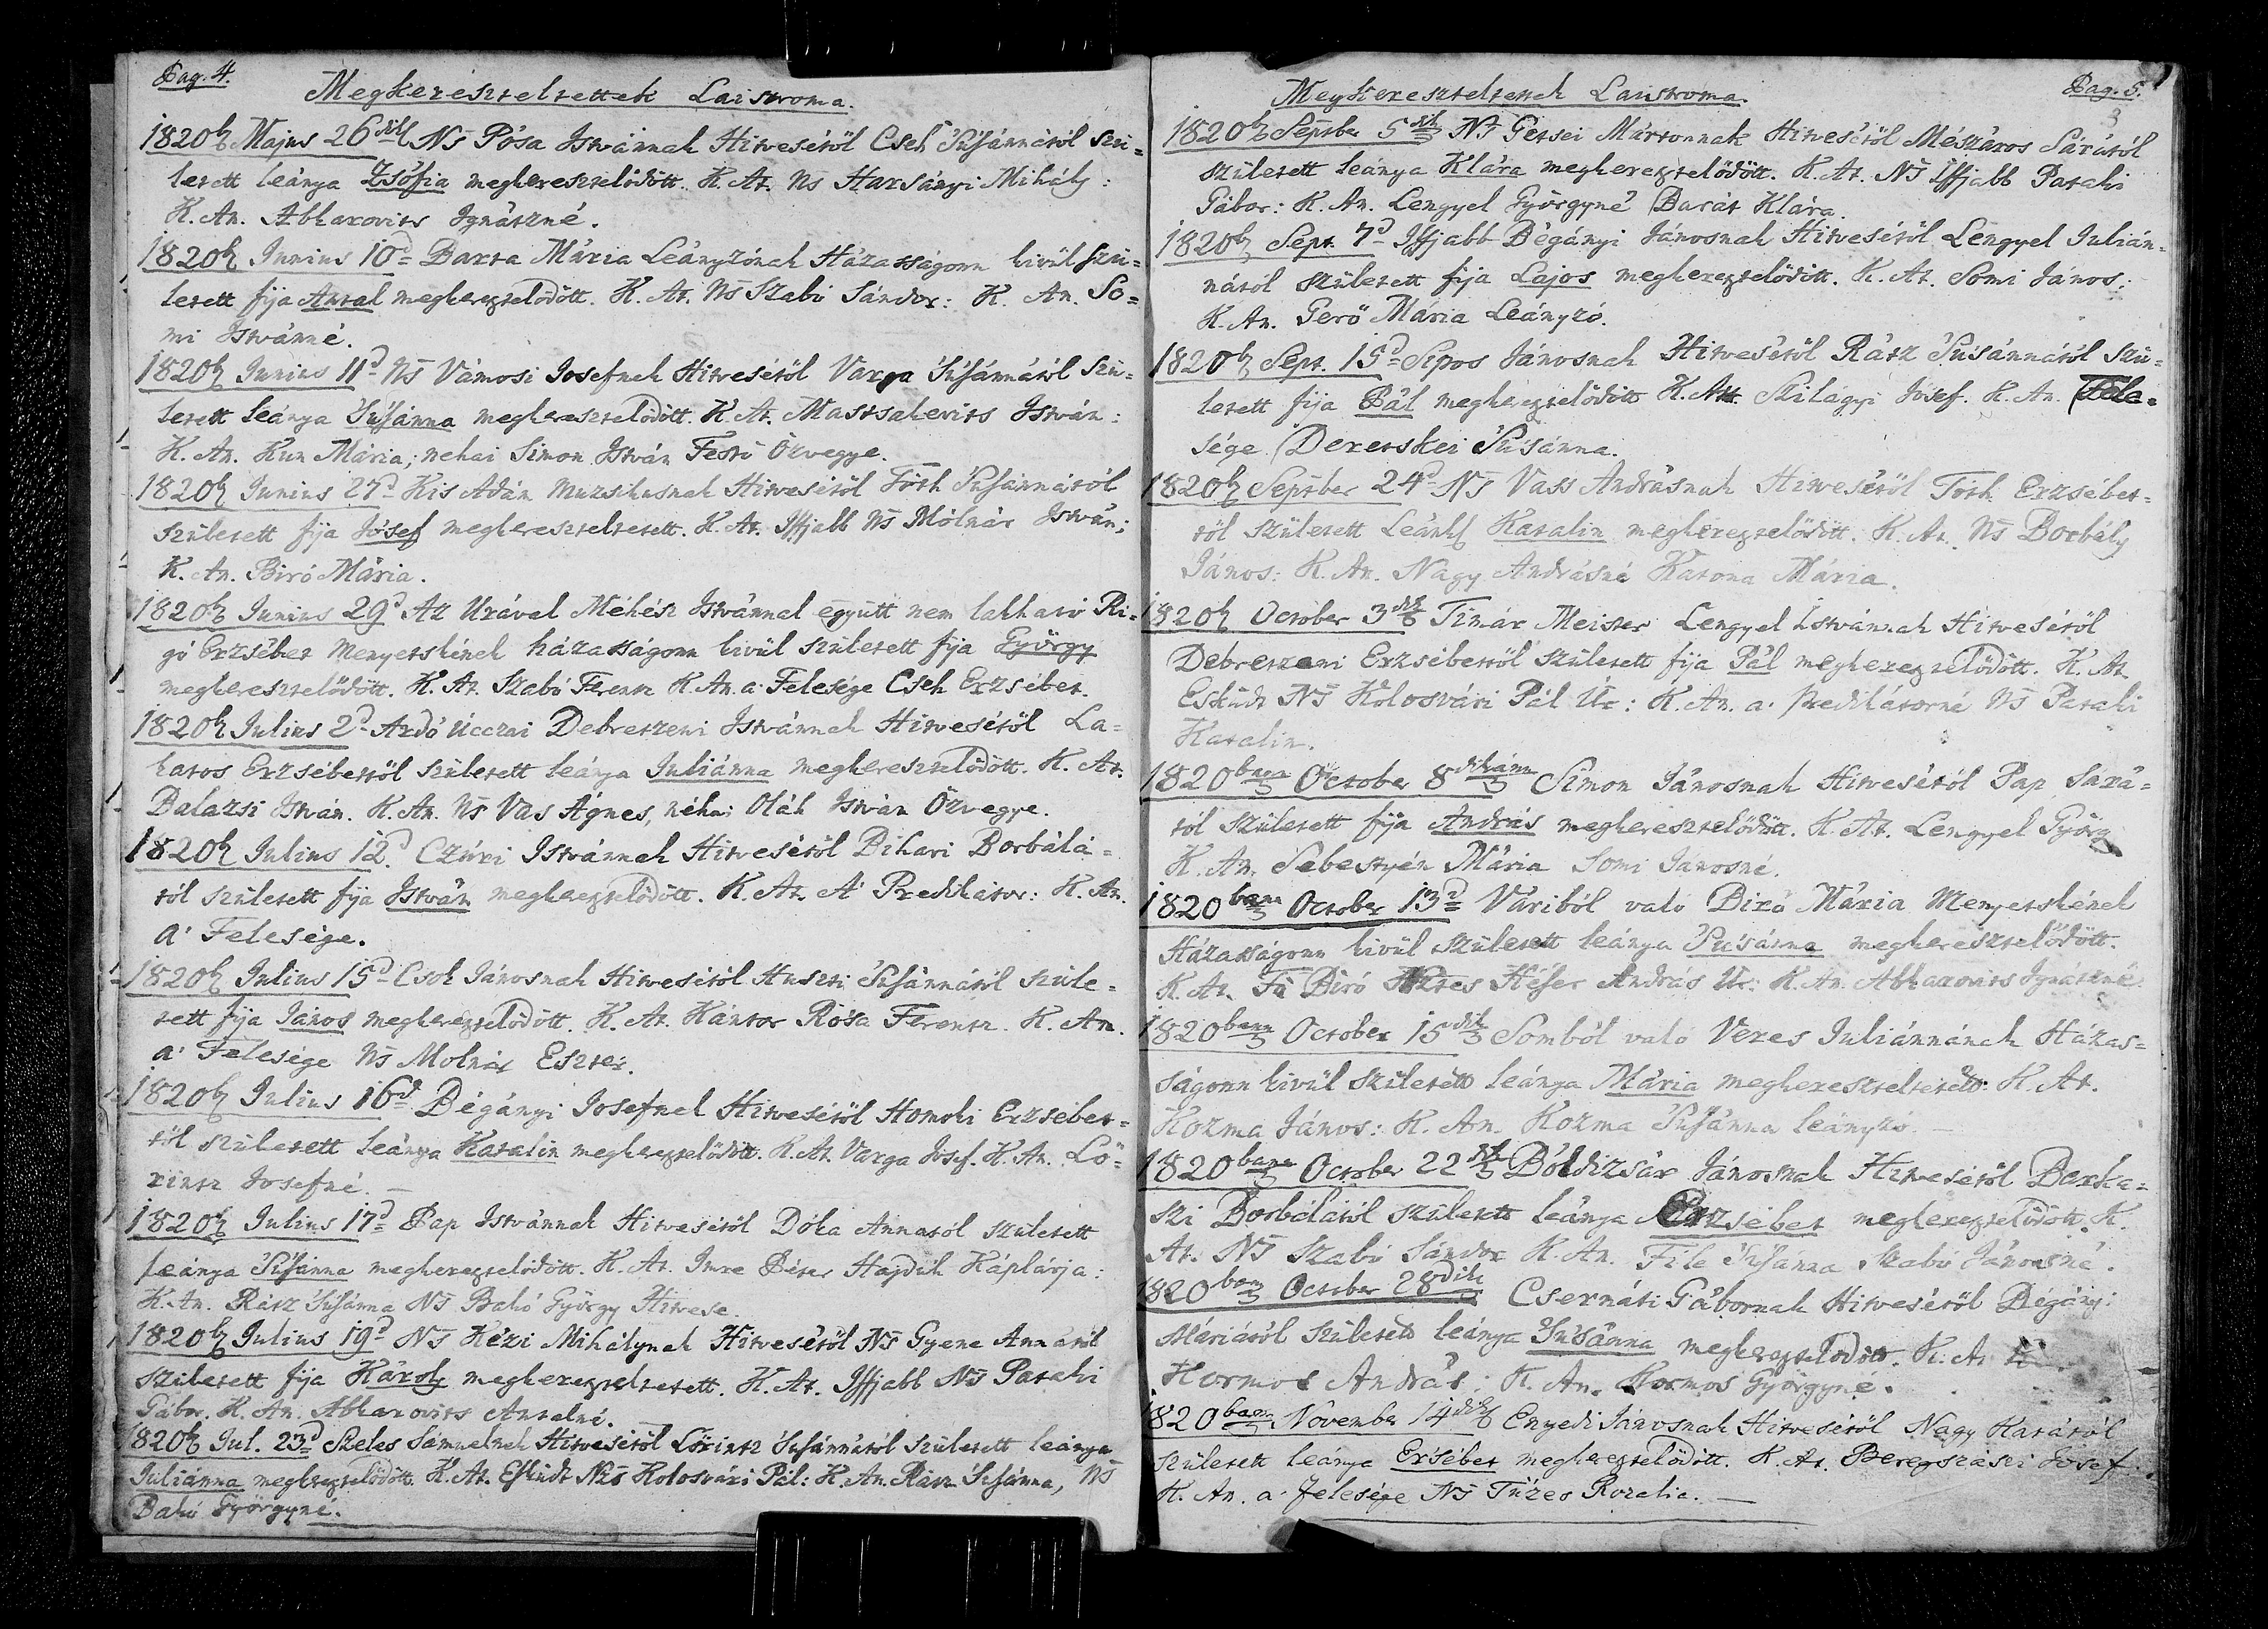 Pag. 4.
Megkereszteltettek Laistroma.
1820b. Majus 26dik Ns Pósa Istvánnak Hitvesétöl Cseh Susánnától szü=
letett leánya Zsófia megkeresztelödött. K. At. Ns Harsányi Mihály:
K. An. Abkarovits Ignátzné.
1820b Junius 10d Barta Mária Leányzónak Házasságonn kivül szü=
letett fija Antal megkeresztelödött. K. At. Ns Szabó Sándor: K. An. So=
mi Istvánné.
1820b Junius 11d Ns Vámosi Josefnek Hitvesétöl Varga Susánnától szü=
letett leánya Susánna megkeresztelödött. K. At. Matsakevits István:
K. An. Kun Mária; nehai Simon István Festö Özvegye.
1820b Junius 27d Kis Adán Muzsikusnak Hitvesétöl Tóth Susánnától
született fija Jósef megkereszteltetett. K. At. Iffjabb Ns Mólnár István;
K. An. Biró Mária.
1820b Junius 29d Az Urával Méhész Istvánnal együtt nem lakható Ri=
gó Erzsébet Menyetskének házasságonn kivül született fija György
megkeresztelödött. K. At. Szabó Ferentz K. An. a' Felesége Cseh Erzsébet.
1820b Julius 2d Ardó Úcczai Debretzeni Istvánnak Hitvesétöl La=
katos Erzsébettöl született leánya Juliánna megkeresztelödött. K. At.
Balazsi István. K. An. Ns Vas Ágnes, néhai Oláh István Özvegye.
1820b Julius 12d. Czúri Istvánnak Hitvesétöl Bihari Borbálá=
tól született fija István megkeresztelödött. K. At. A' Predikátor: K. An.
a' Felesége.
1820b Julius 15d Csok Jánosnak Hitvesétöl Huszti Susánnától szüle=
tett fija János megkeresztelödött. K. At. Kántor Rósa Ferentz. K. An.
a' Felesége Ns Molnár Eszter.
1820b Julius 16d Bégányi Josefnek Hitvesétöl Homoki Erzsébet=
töl született leánya Katalin megkeresztelödött. K. At. Varga Josef. K. An. Lö=
rintz Josefné. —
1820b Julius 17d Pap Istvánnak Hitvesétöl Dóka Annától született
leánya Susánna megkeresztelödött. K. At. Imre Péter Hajdúk Káplárja:
K. An. Rátz Susánna Ns Bakó György Hitvese.
1820b Julius 19d Ns Kézi Mihálynak Hitvesétöl Ns Gyene Annától
született fija Károly megkereszteltetett. K. At. Iffjabb Ns Pataki
Gábor. K. An. Abkarovits Antalné.
1820b Jul. 23d Szeles Sámuelnek Hitvesétöl Lörintz Susánnától született leánya
Juliánna megkeresztelödött. K. At. Esküdt Ns Kolosvári Pál: K. An. Rátz Susánna, Ns
Bakó Györgyné.
Pag. 5.
Megkereszteltettek Laistroma.
1820b Septber 5dik Ns Getsei Mártonnak Hitvesétöl Mészáros Sárától
született leánya Klára megkeresztelödött. K. At. Ns Iffjabb Pataki
Gábor: K. An. Lengyel Györgyné Barát Klára.
1820b Sept. 7d Iffjabb Bégányi Jánosnak Hitvesétöl Lengyel Julián=
nától született fija Lajos megkeresztelödött. K. At. Somi János:
K. An. Gerö Mária Leányzó.
1820b Sept. 15d Sipos Jánosnak Hitvesétöl Rátz Susánnától szü=
letett fija Pál megkeresztelödött K. At. Szilágyi Josef. K. An. Fele=
sége Deretskei Susánna.
1820b Septber 24d Ns Vass Andrásnak Hitvesétöl Tóth Erzsébet=
töl született Leánk Katalin megkeresztelödött. K. At. Ns Borbély
János: K. An. Nagy Andrásné Katona Mária.
1820b October 3dik Timár Meister Lengyel Istvánnak Hitvesétöl
Debretzeni Erzsébettöl született fija Pál megkeresztelödött. K. At.
Esküdt Ns Kolosvári Pál Úr: K. An. a' Predikátorné Ns Pataki
Katalin.
1820bann October 8dikánn Simon Jánosnak Hitvesétöl Pap Sárá=
tól született fija András megkeresztelödött. K. At. Lengyel György
K. An. Sebestyén Mária Somi Jánosné.
1820bann October 13d Váriból való Biró Mária Menyetskének
Házasságonn kivül született leánya Susánna megkeresztelödött.
K. At. Fö Biró Héser András Ur: K. An. Abkarovits Ignátzné.
1820bann October 15dik Somból való Veres Juliánnának Házas=
ságonn kivül született leánya Mária megkereszteltetett: K. At.
Kozma János: K. An. Kozma Susánna leányzó. —
1820bann October 22dik Bóldizsár Jánosnak Hitvesétöl Barka=
szi Borbálától született leánya Erzsébet megkeresztelödött. K.
At. Ns Szabó Sándor K. An. File Susánna Szabó Jánosné.
1820bann October 28dik Csernáti Gábornak Hitvesétöl Bégányi
Máriától született leánya Susánna megkeresztelödött. K. At
Kormos András: K. An. Kormos Györgyné.
1820bann November 14dik Enyedi Jánosnak Hitvesétöl Nagy Katától
született leánya Ersébet megkeresztelödött. K. At. Beregszászi Josef.
K. An. a' felesége Ns Tüzes Rozalia. —